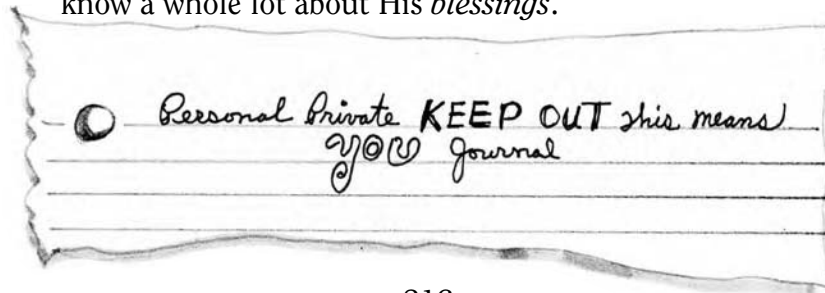 know a whole lot about His blessings.
Personal Private KEEP OUT this means
YOU Journal